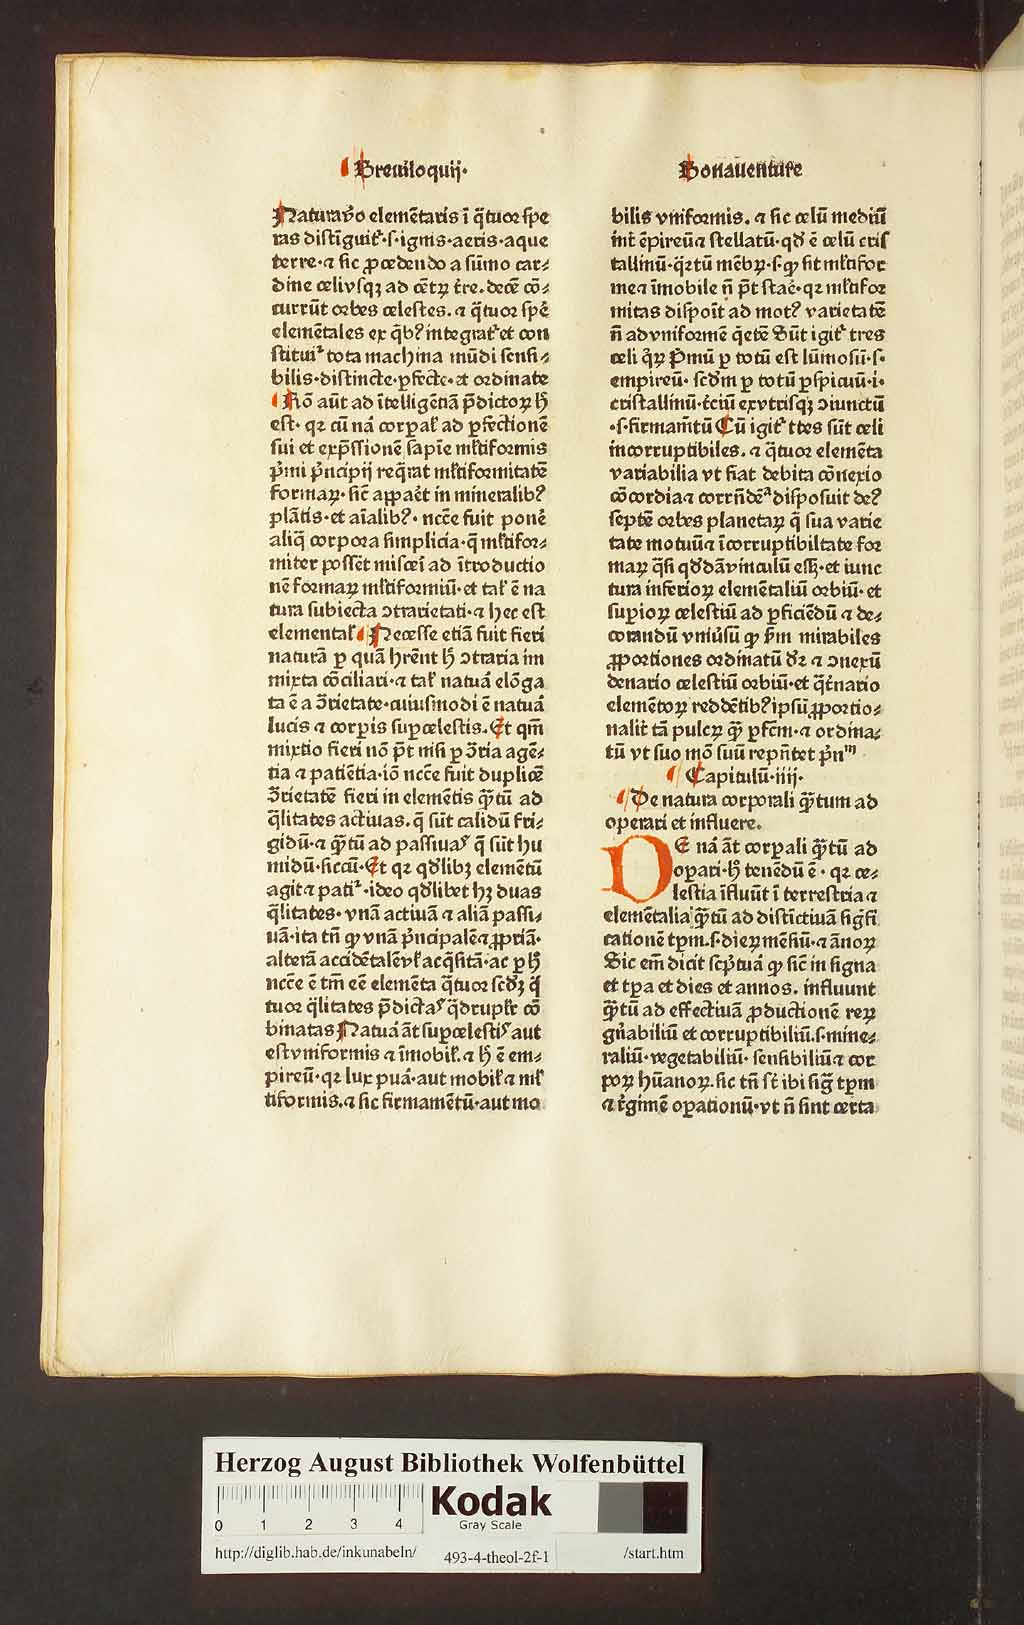 Breuiloquij·
Naturav̄o elemētaris ī q̄tuor spe
ras distīguit᷑·s·ignis·aeris·aque
terre·⁊ sic ꝓcedendo a sūmo car⸗
dine celiusqꝫ ad cētꝝ t̄re. decē cō⸗
currūt orbes celestes. ⁊ q̄tuor spē
elemētales ex q̄bꝰ integrat᷑ et con
stitui᷑ tota machina mūdi sensi⸗
bilis·distincte·ꝑfecte·et ordinate
Rō aūt ad ītelligētiā p̄dictoꝝ ħ
est· qꝛ cū nā corꝑal̄ ad ꝑfectionē
sui et exp̄ssionē sapīe ml̄tiformis
p̄mi p̄ncipij req̄rat ml̄tiformitatē
formaꝝ· sic̄ appaēt in mineralibꝰ
plātis·et aīalibꝰ· ncc̄e fuit ponē
aliq̄ corpora simplicia·q̄ ml̄tifor⸗
miter possēt misceī ad ītroductio
nē formaꝝ ml̄tiformiū·et tal̄ ē na
tura subiecta ↄtrarietati·⁊ hec est
elemental̄ Necesse etiā fuit fieri
naturā ꝑ quā hrēnt ħ ↄtraria im
mixta cōciliari·⁊ tal̄ natuā elōga
ta ē a ↄ̄rietate·cuiusmodi ē natuā
lucis ⁊ corꝑis suꝑcelestis. Et qm̄
mixtio fieri nō p̄t nisi ꝑ ↄ̄ria agē⸗
tia ⁊ patiētia·iō ncc̄e fuit duplicē
ↄ̄rietatē fieri in elemētis q̄tū ad
q̄litates actiuas. q̄ sūt calidū fri⸗
gidū·⁊ q̄tū ad passiuas q̄ sūt hu
midū·siccū·Et qꝛ qd̄libꝫ elemētū
agit⁊ pati᷑·ideo qd̄libet hꝫ duas
q̄litates· vnā actiuā ⁊ aliā passi⸗
uā·ita tn̄ ꝙ vnā p̄ncipalē⁊ꝓpriā·
alterā accidētalēvl̄ acq̄sitā·ac ꝑ ħ
ncc̄e ē tm̄ eē elemēta q̄tuor scd̄ꝫ q̄
tuor q̄litates p̄dictas q̄drupl̄r cō
binatas Natuā āt suꝑcelestis aut
est vniformis ⁊ īmobil̄. ⁊ ħ ē em⸗
pireū·qꝛ lux puā·aut mobil̄ ⁊ ml̄
tiformis.⁊ sic firmamētū·aut mo
Bonauenture
bilis vniformis. ⁊ sic celū mediū
int̄ ēpireū⁊ stellatū·qd̄ ē celū cris
tallinū·q̄rtū mēbꝝ·s·ꝙ sit ml̄tifor
me⁊ īmobile n̄ p̄t staē·qꝛ ml̄tifor
mitas dispoīt ad motꝰ varietatē
n̄ ad vniformē q̄etē Sūt igit᷑ tres
celi q̄ꝝ p̄mū ꝑ totū est lūmosū·s·
empireū· scd̄m ꝑ totū ꝑspicuū·i·
cristallinū·t̄ciū exvtrisqꝫ ↄiunctū
·s·firmam̄tū Cū igit᷑ ttes sūt celi
incorruptibiles. ⁊ q̄tuor elemēta
variabilia vt fiat debita cōnexio
cōcordia⁊ corrn̄dēᵃ disposuit deꝰ
septē orbes planetaꝝ q̄ sua varie
tate motuū⁊ īcorruptibiltate for
maꝝ q̄si qd̄dāvinculū essꝫ·et iunc
tura inferioꝝ elemētaliū orbiū·et
suꝑioꝝ celestiū ad ꝑficiēdū ⁊ de⸗
corandū vniūsū ꝙ s̄m mirabiles
ꝓportiones ordinatū dr̄ ⁊ ↄnexū
denario celestiū orbiū·et q̄t̄nario
elemētoꝝ reddētibꝰ ipsū ꝓportio⸗
nalit̄ tā pulcꝝ q̄ ꝑfcm̄·⁊ ordina⸗
tū vt suo mō suū repn̄tet p̄nᵐ
Capitulū·iiij·
De natura corporali q̄tum ad
operari et influere.
DE nā āt corꝑali q̄tū ad
oꝑari·ħ tenēdū ē· qꝛ ce⸗
lestia īfluūt ī terrestria ⁊
elemētalia q̄tū ad distīctiuā siḡfi
cationē tꝑm·s·dieꝝ mēsiū·⁊ ānoꝝ
Sic em̄ dicit scp̄tuā ꝙ sic̄ in signa
et tꝑa et dies et annos. influunt
q̄tū ad effectiuā ꝓductionē reꝝ
gn̄abiliū et corruptibiliū·s·mine⸗
raliū·vegetabiliū· sensibiliū⁊ cor
poꝝ hūanoꝝ·sic tn̄ st̄ ibi siḡ tꝑm
⁊ r̄gimē oꝑationū·vt n̄ sint certa
Herzog August Bibliothek Wolfenbüttel
0 1 2 3 4
Kodak
Gray Scale
http://diglib.hab.de/inkunabeln/ 493-4-theol-2f-1 /start.htm